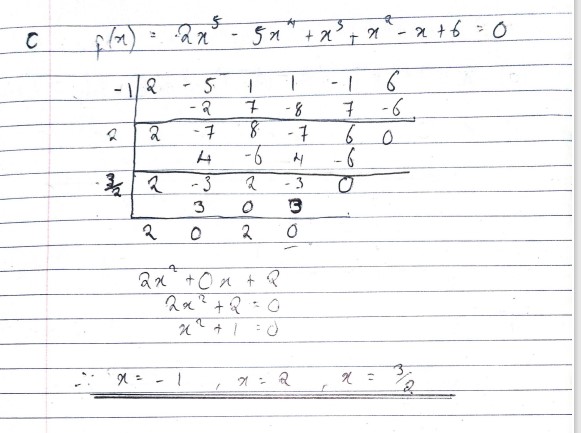 C p(x) = 2x⁵ - 5x⁴ + x³ + x² - x + 6 = 0
-1 | 2 -5 1 1 -1 6
-2 7 -8 7 -6
2 | 2 -7 8 -7 6 0
4 -6 4 -6
3/2 | 2 -3 2 -3 0
3 0 3
2 0 2 0
2x² + 0x + 2
2x² + 2 = 0
x² + 1 = 0
∴ x = -1 , x = 2 , x = 3/2